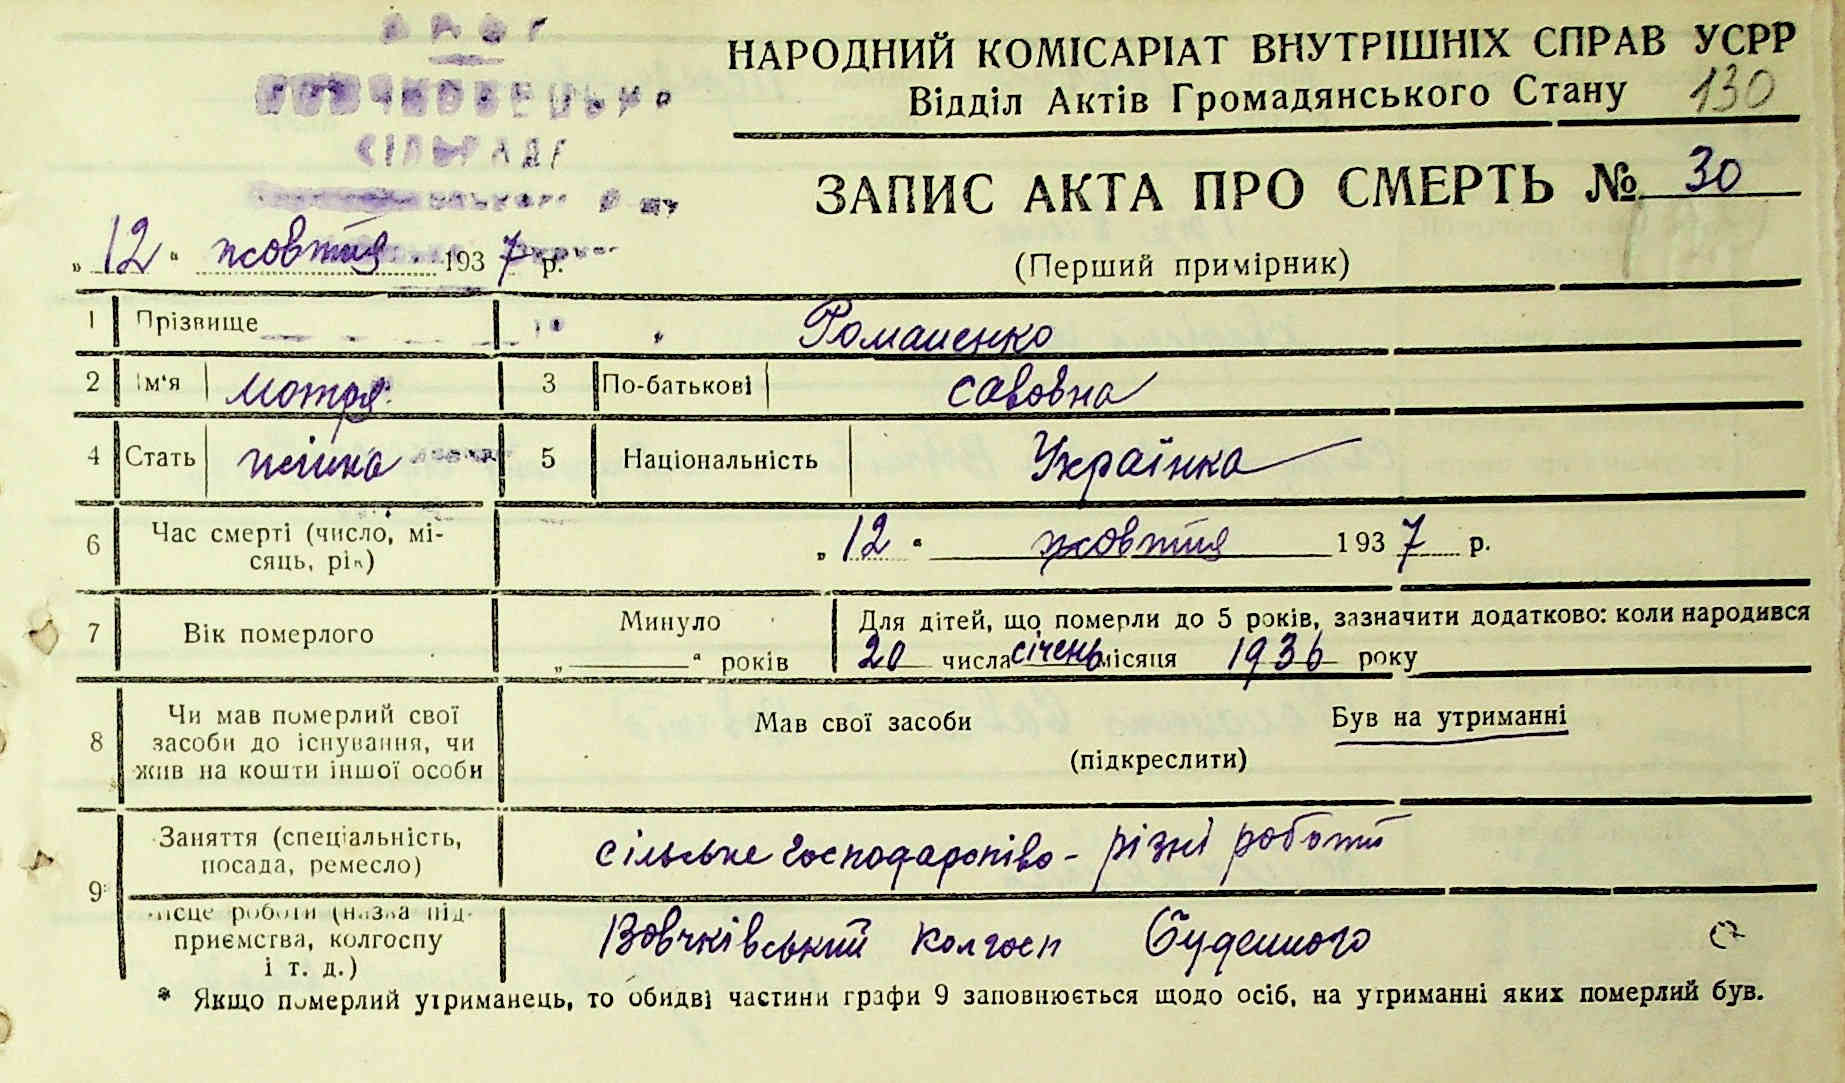 ЗАГС
СІЛЬРАДІ
НАРОДНИЙ КОМІСАРІАТ ВНУТРІШНІХ СПРАВ УСРР
Відділ Актів Громадянського Стану 130
ЗАПИС АКТА ПРО СМЕРТЬ № 30
„12“ жовтня 1937 р. (Перший примірник)
1 Прізвище Романенко
2 Ім'я Мотря 3 По-батькові Савовна
4 Стать жінка 5 Національність Українка
6 Час смерті (число, мі-
сяць, рік) „12“ жовтня 1937 р.
7 Вік померлого Минуло „ “ років
Для дітей, що померли до 5 років, зазначити додатково: коли народився
20 числа січень місяця 1936 року
8 Чи мав померлий свої
засоби до існування, чи
жив на кошти іншої особи
Мав свої засоби Був на утриманні
(підкреслити)
9 Заняття (спеціальність,
посада, ремесло)
сільське господарство - різні роботи
Місце роботи (назва під-
приємства, колгоспу
і т. д.)
Вовчківський колгосп Буденного
* Якщо померлий утриманець, то обидві частини графи 9 заповнюється щодо осіб, на утриманні яких померлий був.